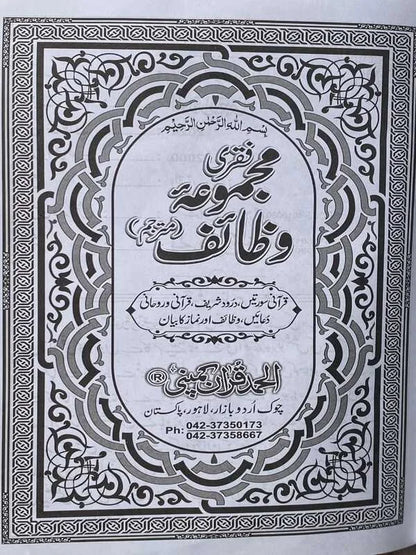 بسم الله الرحمن الرحیم
فقری
مجموعۂ
وظائف (مترجم)
قرآنی سورتیں، درود شریف، قرآنی و روحانی
دعائیں، وظائف اور نماز کا بیان
الحمد قرآن کمپنی ®
چوک اُردو بازار، لاہور، پاکستان
Ph: 042-37350173
042-37358667